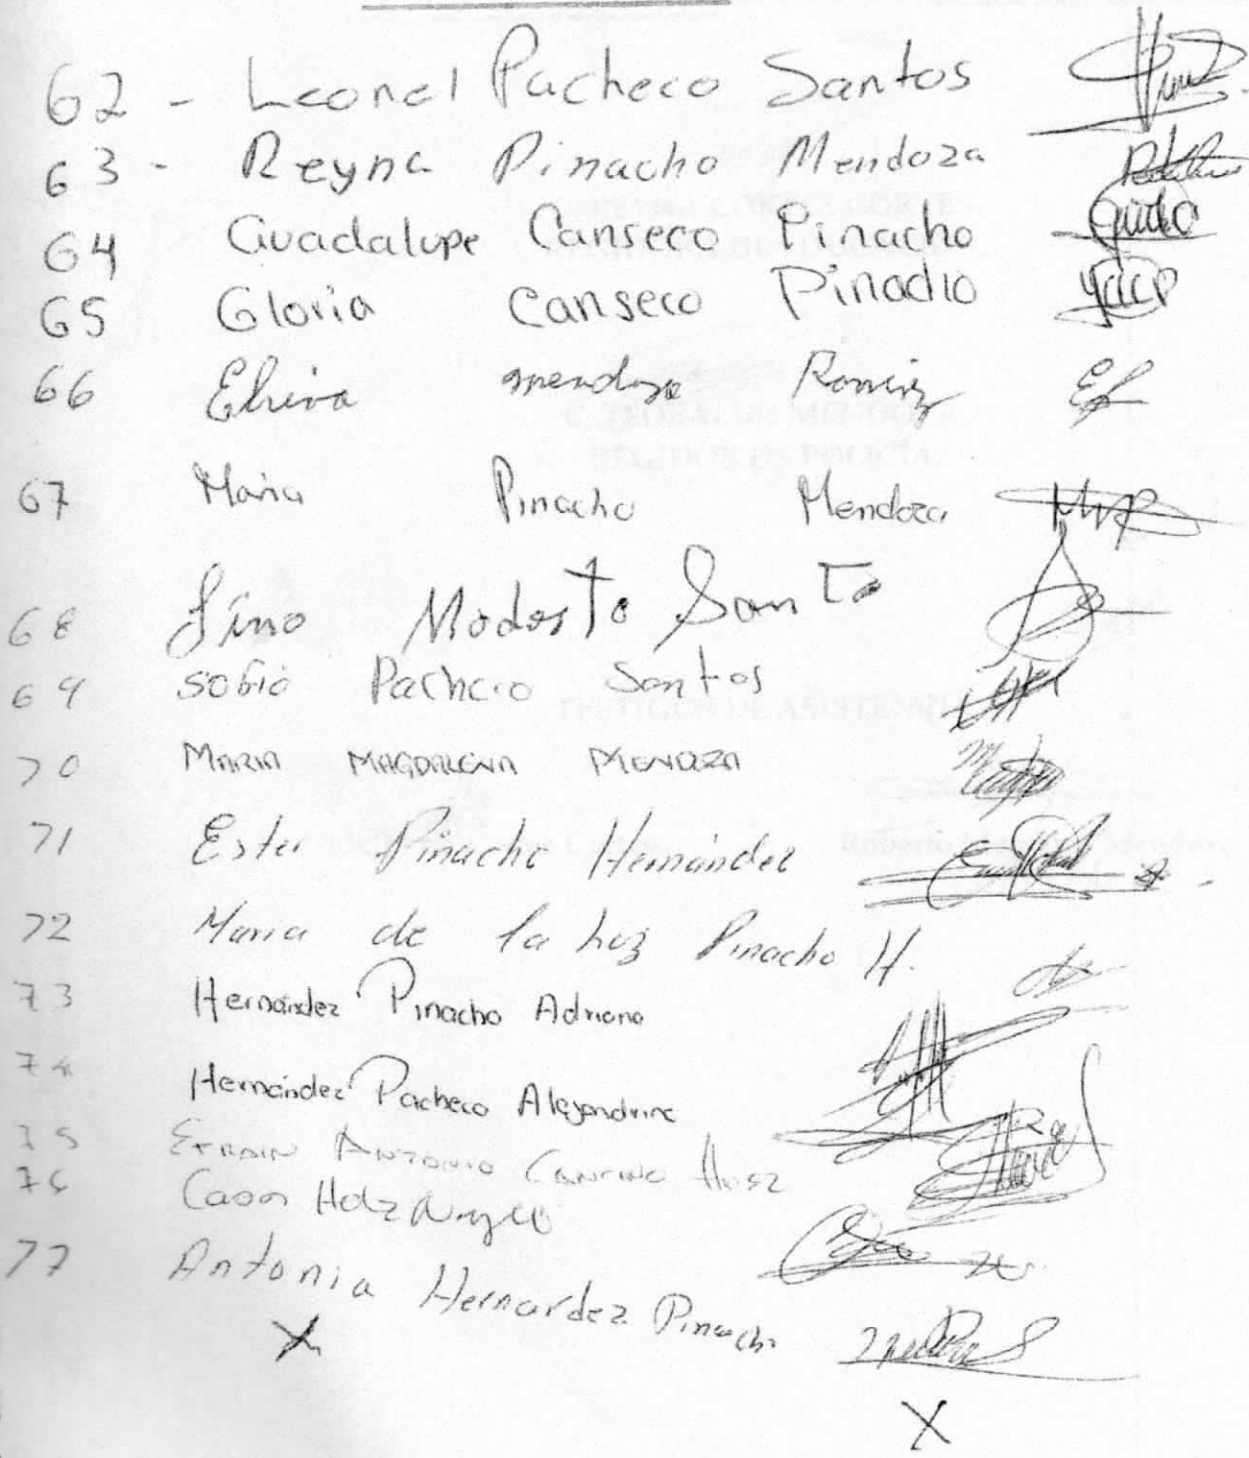 62 - Leonel Pacheco Santos
63 - Reyna Pinacho Mendoza
64 Guadalupe Canseco Pinacho
65 Gloria Canseco Pinacho
66 Elvira mendoza Ramirez
67 Maria Pinacho Mendoza
68 Lino Modesto Santo
69 Sofio Pacheco Santos
70 MARIA MAGDALENA MENDOZA
71 Ester Pinacho Hernández
72 Maria de la Luz Pinacho H.
73 Hernández Pinacho Adriana
74 Hernández Pacheco Alejandrina
75 EFRAIN ANTONIO CANCINO
76
77 Antonia Hernandez Pinacho
X
X